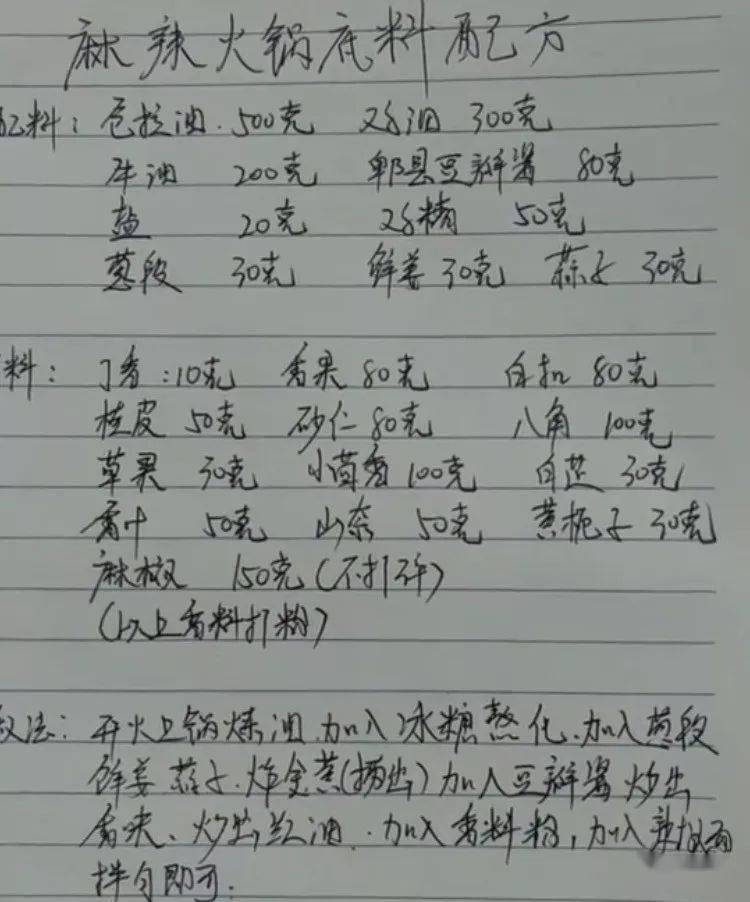 麻辣火锅底料配方
配料：色拉油.500克 鸡油 300克
牛油 200克 郫县豆瓣酱 80克
盐 20克 鸡精 50克
葱段 30克 鲜姜 30克 蒜子 30克
料：丁香：10克 香果 80克 白扣 80克
桂皮 50克 砂仁 80克 八角 100克
草果 30克 小茴香 100克 白芷 30克
香叶 50克 山奈 50克 黄栀子 30克
麻椒 150克（不打碎）
（以上香料打粉）
做法：开火上锅炼油.加入冰糖熬化.加入葱段
鲜姜 蒜子.炸金黄（捞出）加入豆瓣酱 炒出
香味、炒出红油.加入香料粉，加入辣椒面
拌匀即可.